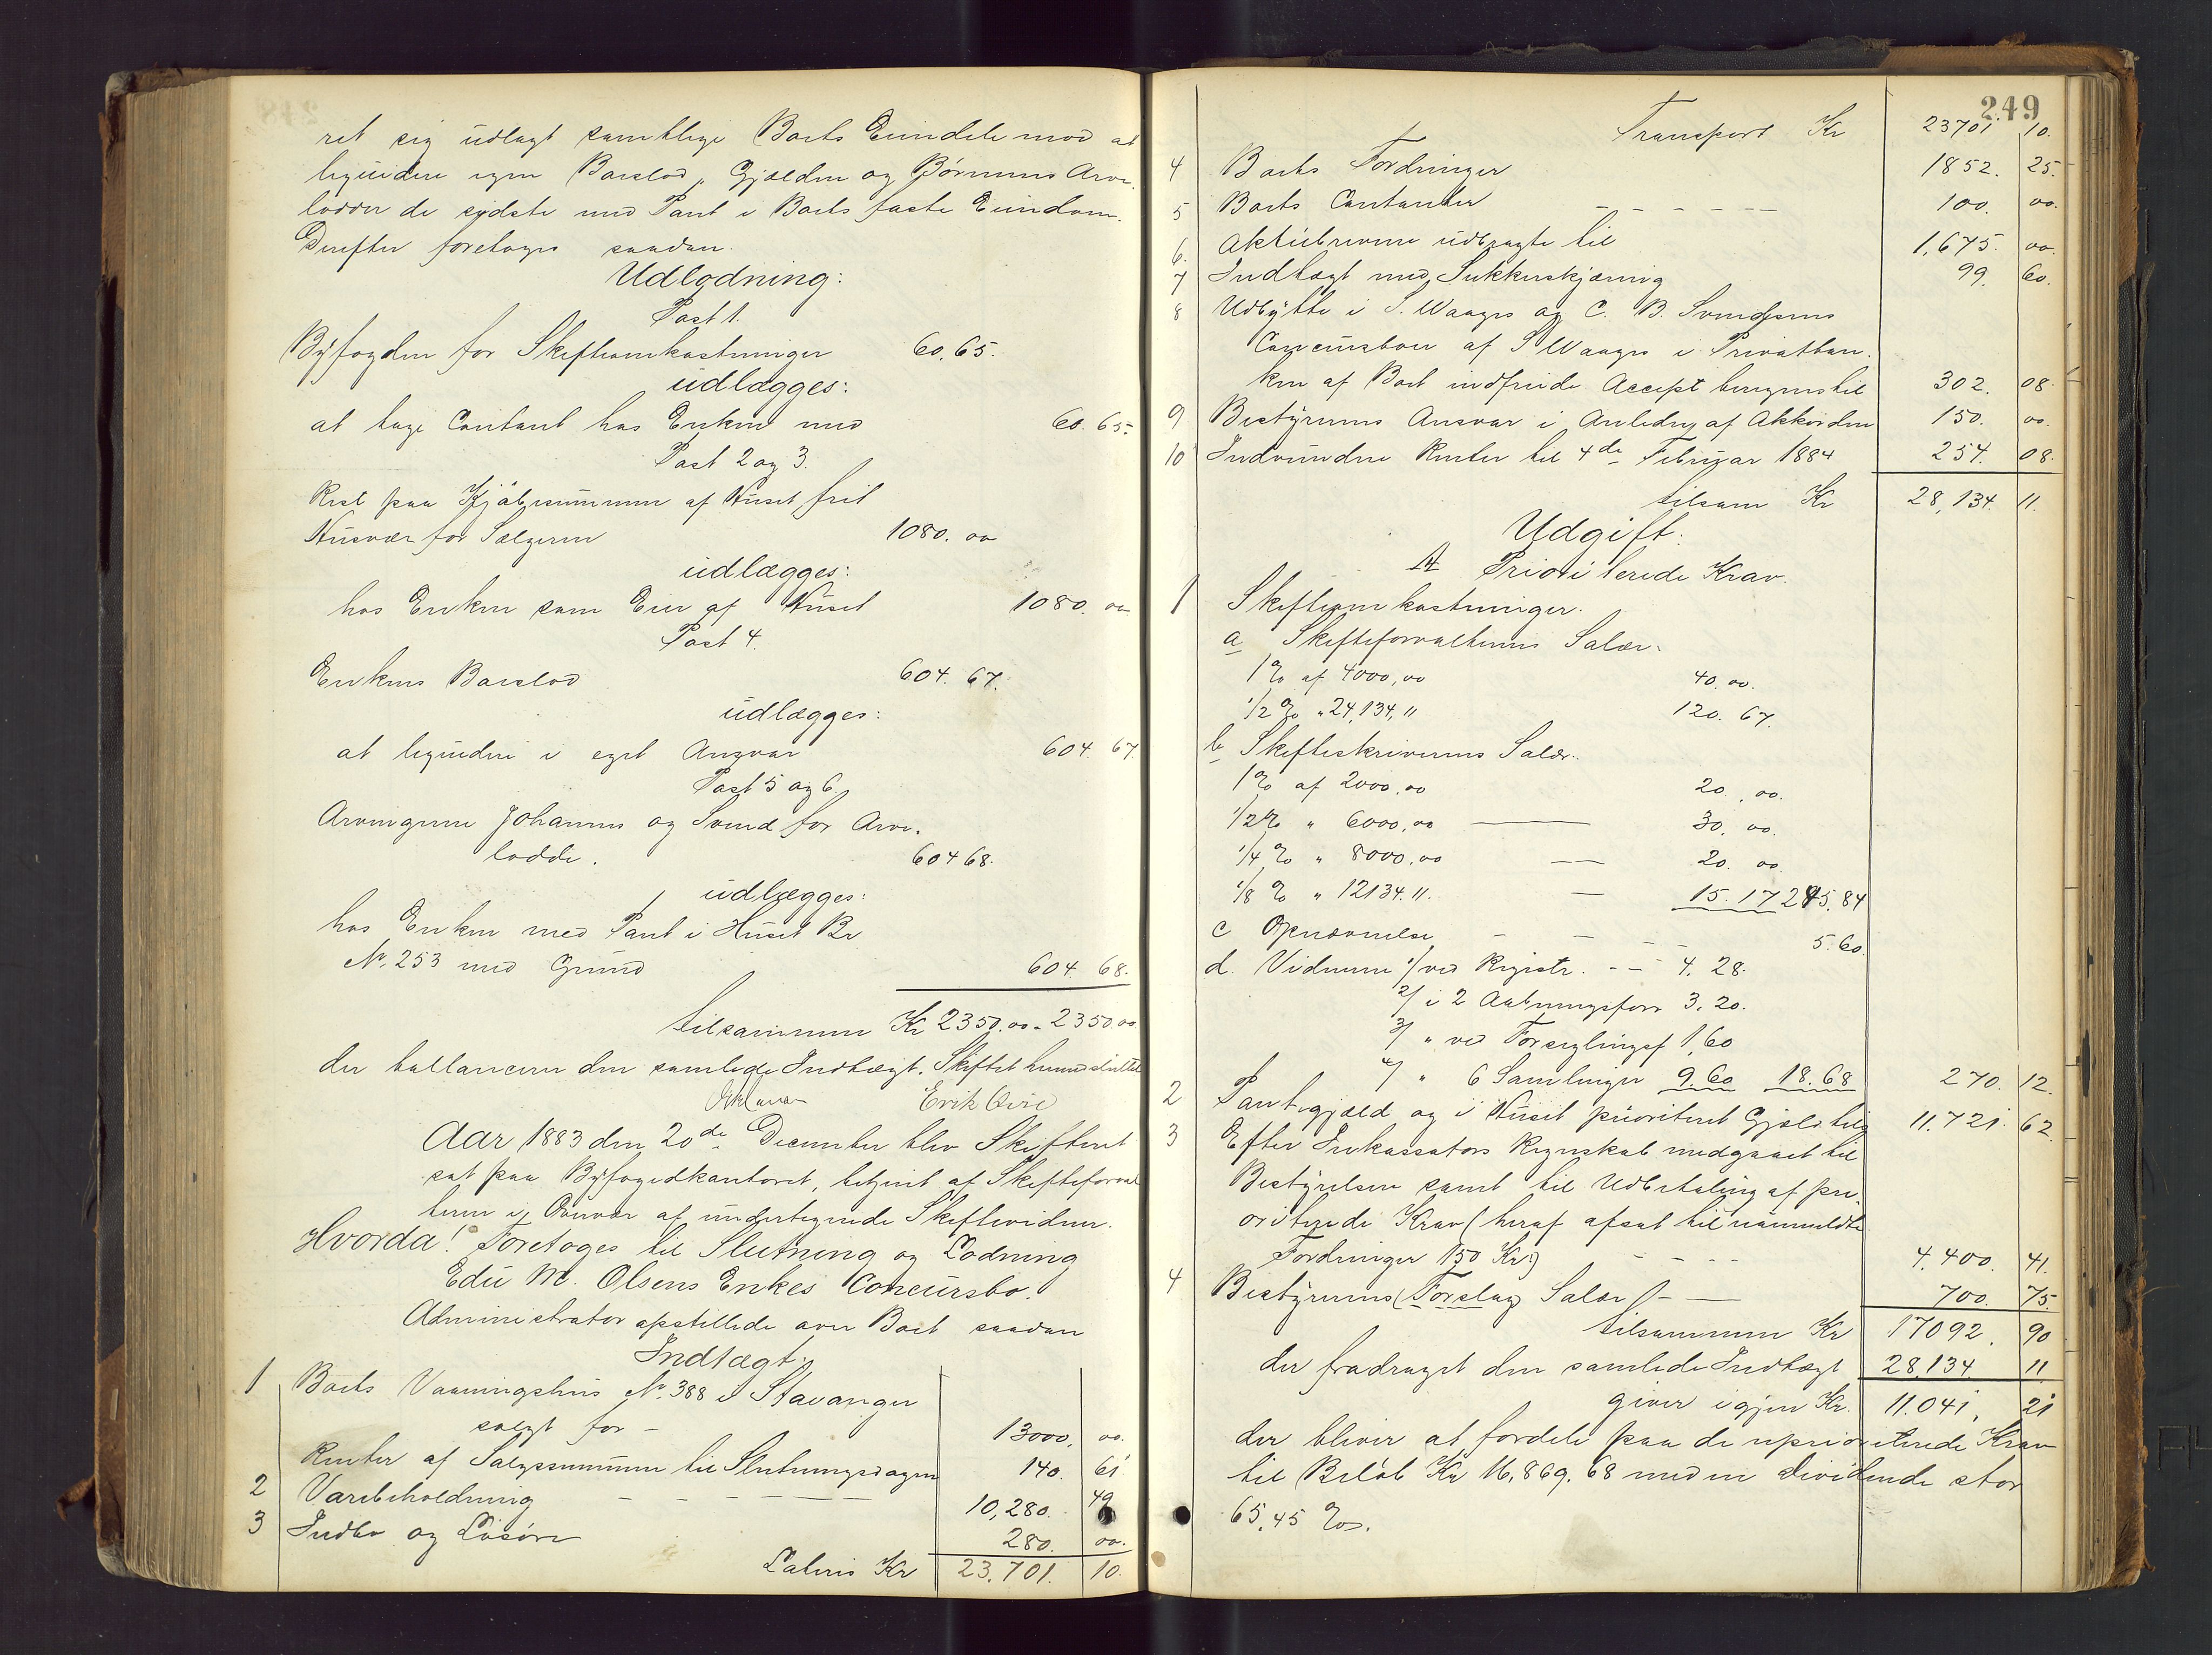 ret sig udlagt samtlige Boets Eiendele mod at
liqvidere egen Boeslod, Gjælden og Børnenes Arve-
lodder de sidste med Pant i Boets faste Eiendom.
Derefter foretoges saadan
Udlodning:
Post 1.
Byfogden for Skifteomkostninger 60.65.
udlægges:
at tage Contant hos Enken med 60.65.
Post 2 og 3.
Rest paa Kjøbesummen af Huset frit
Husvær for Sælgeren 1080.00
udlægges:
hos Enken som Eier af Huset 1080.00
Post 4.
Enkens Boeslod 604.67.
udlægges:
at liqvidere i eget Ansvar 604.67
Post 5 og 6.
Arvingerne Johannes og Svend for Arve-
lodde. 604 68.
udlægges:
hos Enken med Pant i Huset Br
No. 253 med Grund 604.68.
tilsammen Kr 2350.00 - 2350.00
der ballancerer den samlede Indtægt. Skiftet hermed sluttet
Erik Qvie
Aar 1883 den 20de December blev Skifteret
sat paa Byfogedkontoret, betjent af Skifteforval
teren i Overvær af undertegnede Skiftevidner.
Hvorda! Foretoges til Slutning og Lodning
Edu M. Olsens Enkes Concursbo.
Administrator opstillede over Boet saadan
Indtægt:
1 Boets Vaaningshus No. 388 i Stavanger
solgt for - 13000. 00.
Renter af Salgssummen til Slutningsdagen 140. 61
2 Varebeholdning 10,280. 49
3 Indbo og Løsøre 280. 00.
Lateris Kr 23.701. 10.
249
Transport Kr 23701 10.
4 Boets Fordringer 1852. 25.
5 Boets Contanter 100. 00.
6. Aktiebrevene udbragte til 1,675. 00.
7 Indtægt ved Sukkerskjæring 99. 60.
8 Udbytte i S. Waages og C. B. Svendsens
Concursboer af S Waages i Privatban-
ken af Boet indfriede Accept beregnes til 302. 08.
9 Bestyrerens Ansvar i Anledng af Akkorden 150. 00.
10 Indvundne Renter til 4de Februar 1884 254. 08.
tilsam Kr 28,134. 11.
Udgift:
A Prioriterede Krav.
1 Skifteomkostninger.
a Skifteforvalterens Salær.
1 % af 4000,00 40.00.
1/2 % " 24,134,11 120.67.
b Skifteskriverens Salær.
1 % af 2000,00 20.00.
1/2 % " 6000,00 30.00.
1/4 % " 8000,00 20.00
1/8 % " 12134.11. 15.17 245.84
c Opnævnelse 5.60.
d. Vidnerne 1/ ved Registr. 4.28.
2/ i 2 Aabningsforr 3.20.
3/ " ved Forseglingsf 1,60
4/ " 6 Samlinger 9.60 18.68 270. 12.
2 Pantegjæld og i Huset prioriteret Gjæld tilg 11.721. 62.
3 Efter Inkassators Regnskab medgaaet til
Bestyrelsen samt til Udbetaling af pri-
oriterede Krav (heraf afsat til uanmeldte
Fordringer 150 Kr.) 4.400. 41.
4 Bestyrerens (Forslag) Salær 700. 75.
tilsammen Kr 17092. 90
der fradraget den samlede Indtægt 28,134 11
giver igjen Kr. 11.041, 21
der bliver at fordele paa de uprioriterede Krav
til Beløb Kr 16,869.68 med en Dividende stor
65.45 %.